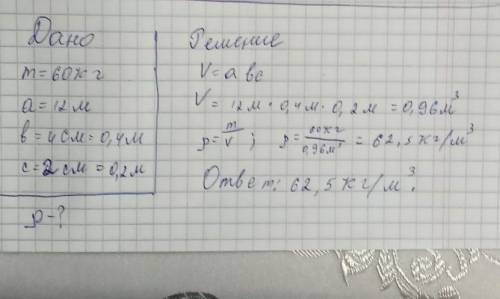 Дано
m=60кг
a=12м
в=4см=0,4м
c=2см=0,2м
p-?
Решение
V=a bc
V= 12м·0,4м·0,2м=0,96м³
p=m/V; p=60кг/0,96м³=62,5кг/м³
Ответ: 62,5кг/м³.